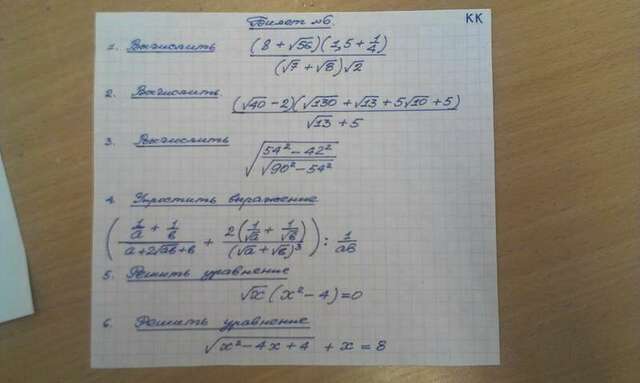 Билет №6.
KK
1. Вычислить (8 + √56)(1,5 + 1/4) / (√7 + √8)√2
2. Вычислить (√40 - 2)(√130 + √13 + 5√10 + 5) / √13 + 5
3. Вычислить √(54² - 42² / √(90² - 54²))
4. Упростить выражение
((1/a + 1/b) / (a + 2√ab + b) + 2(1/√a + 1/√b) / (√a + √b)³) : 1/ab
5. Решить уравнение
√x (x² - 4) = 0
6. Решить уравнение
√(x² - 4x + 4) + x = 8